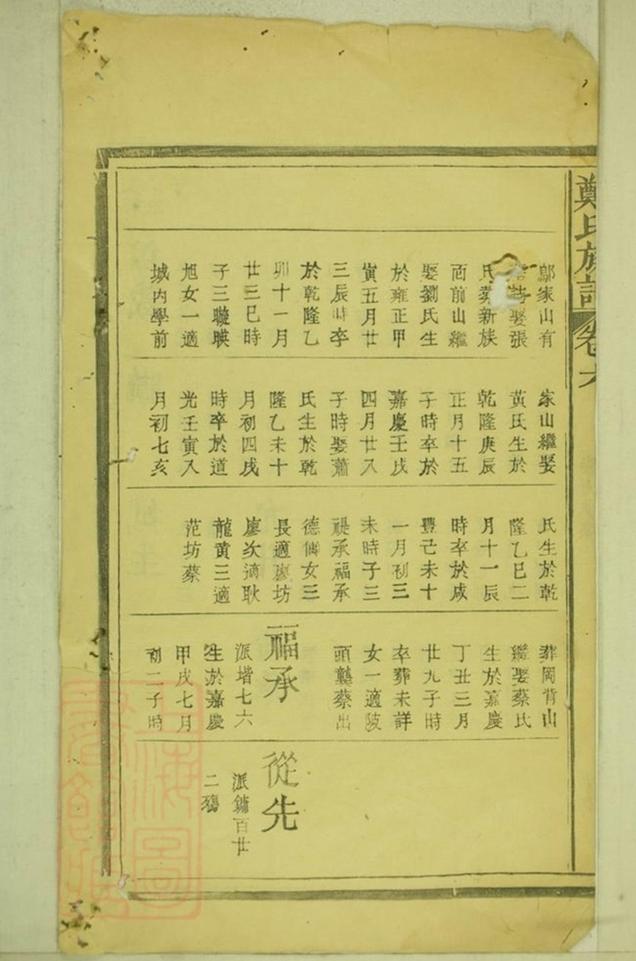 鄭氏族譜 卷六
鄔家山有
娶張
氏葬新族
面前山繼
娶劉氏生
於雍正甲
寅五月廿
三辰時卒
於乾隆乙
卯十一月
廿三巳時
子三 暎
旭女一適
城內學前
家山繼娶
黃氏生於
乾隆庚辰
正月十五
子時卒於
嘉慶壬戌
四月廿又
子時娶蕭
氏生於乾
隆乙未十
月初四戌
時卒於道
光壬寅又
月初七亥
氏生於乾
隆乙巳二
月十一辰
時卒於咸
豐己未十
一月初三
未時子三
禔承福承
德佃女三
長適廖坊
廖次適耿
龍黃三適
范坊蔡
葬岡背山
繼娶蔡氏
生於嘉慶
丁丑三月
廿九子時
卒葬未詳
女一適陂
頭龔蔡出
福承
派堦七六
生於嘉慶
甲戌七月
初二子時
從先
派鏞百廿
二殤